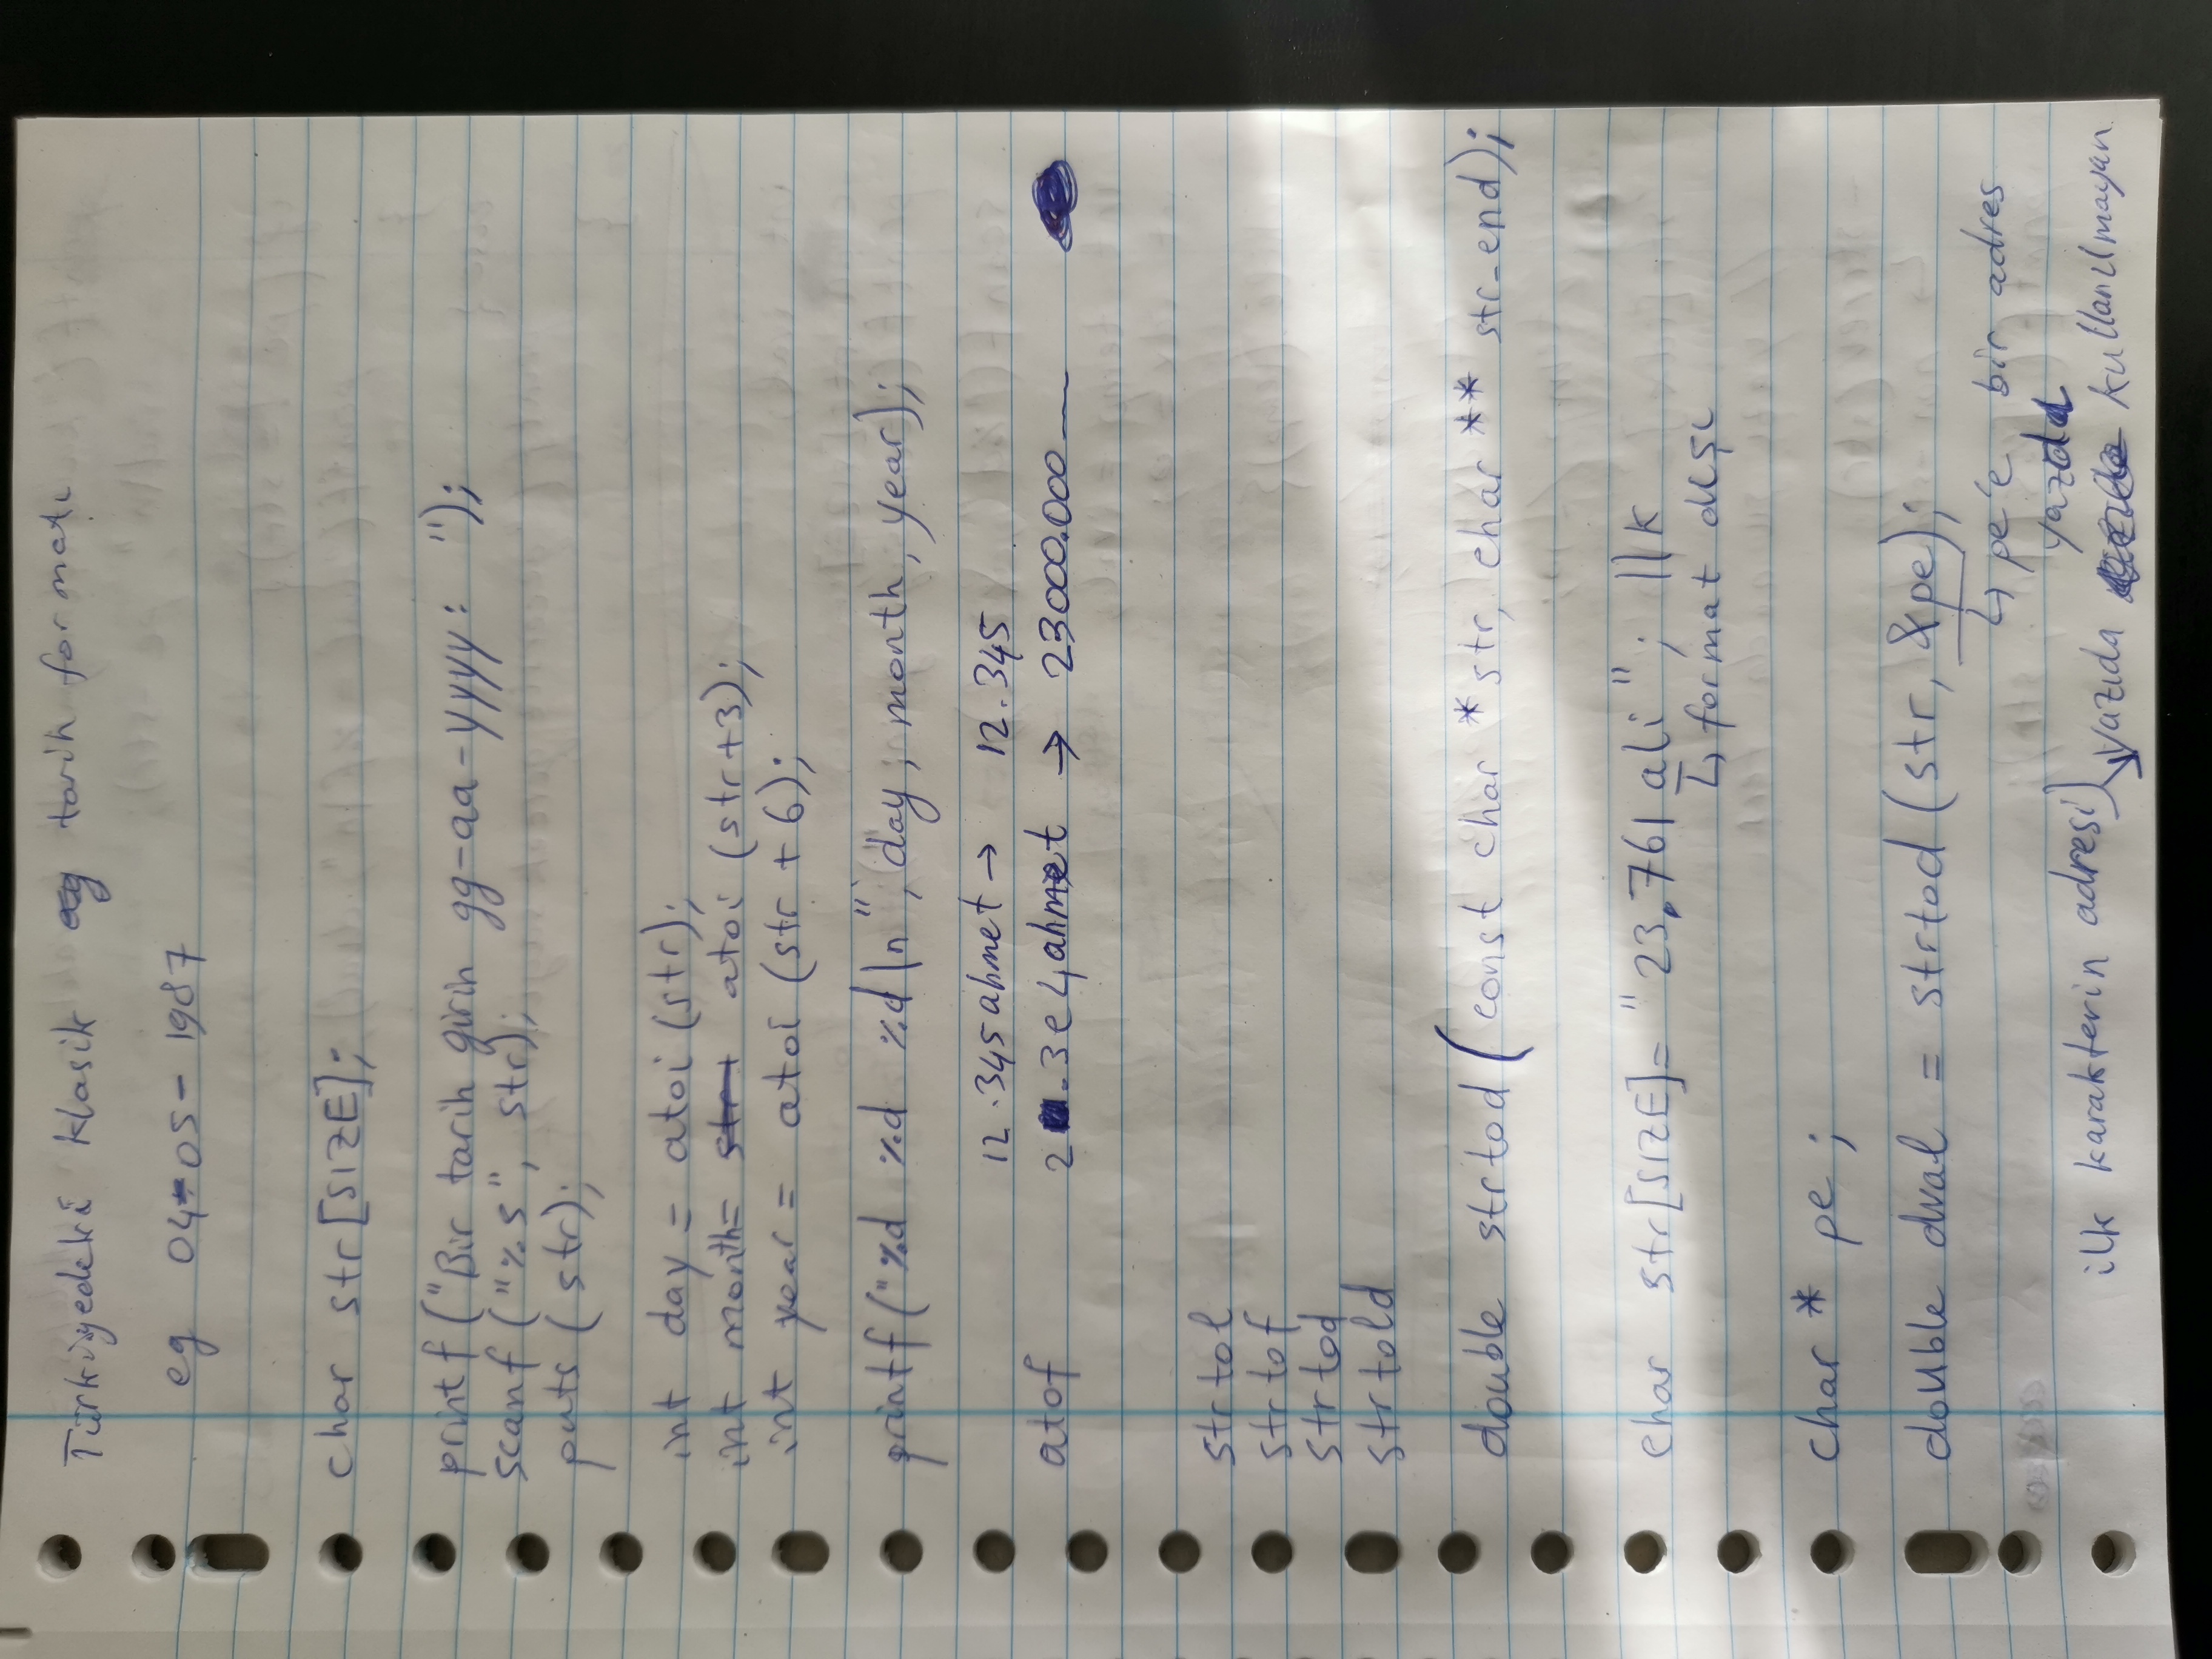 Türkiyedeki klasik tarih formatı
eg 04-05-1987
char str[SIZE];
printf("Bir tarih girin gg-aa-yyyy: ");
scanf("%s", str);
puts(str);
int day = atoi(str);
int month= atoi(str+3);
int year = atoi(str + 6);
printf("%d %d %d\n", day, month, year);
12.345ahmet → 12.345
atof 2.3e4ahmet → 23000.000
strtol
strtof
strtod
strtold
double strtod(const char *str, char ** str_end);
char str[SIZE]= "23.761ali"; ||k
↳ format dışı
char * pe;
double dval = strtod(str, &pe);
↳ pe'e bir adres
yazdı
ilk karakterin adresi) yazıda kullanılmayan